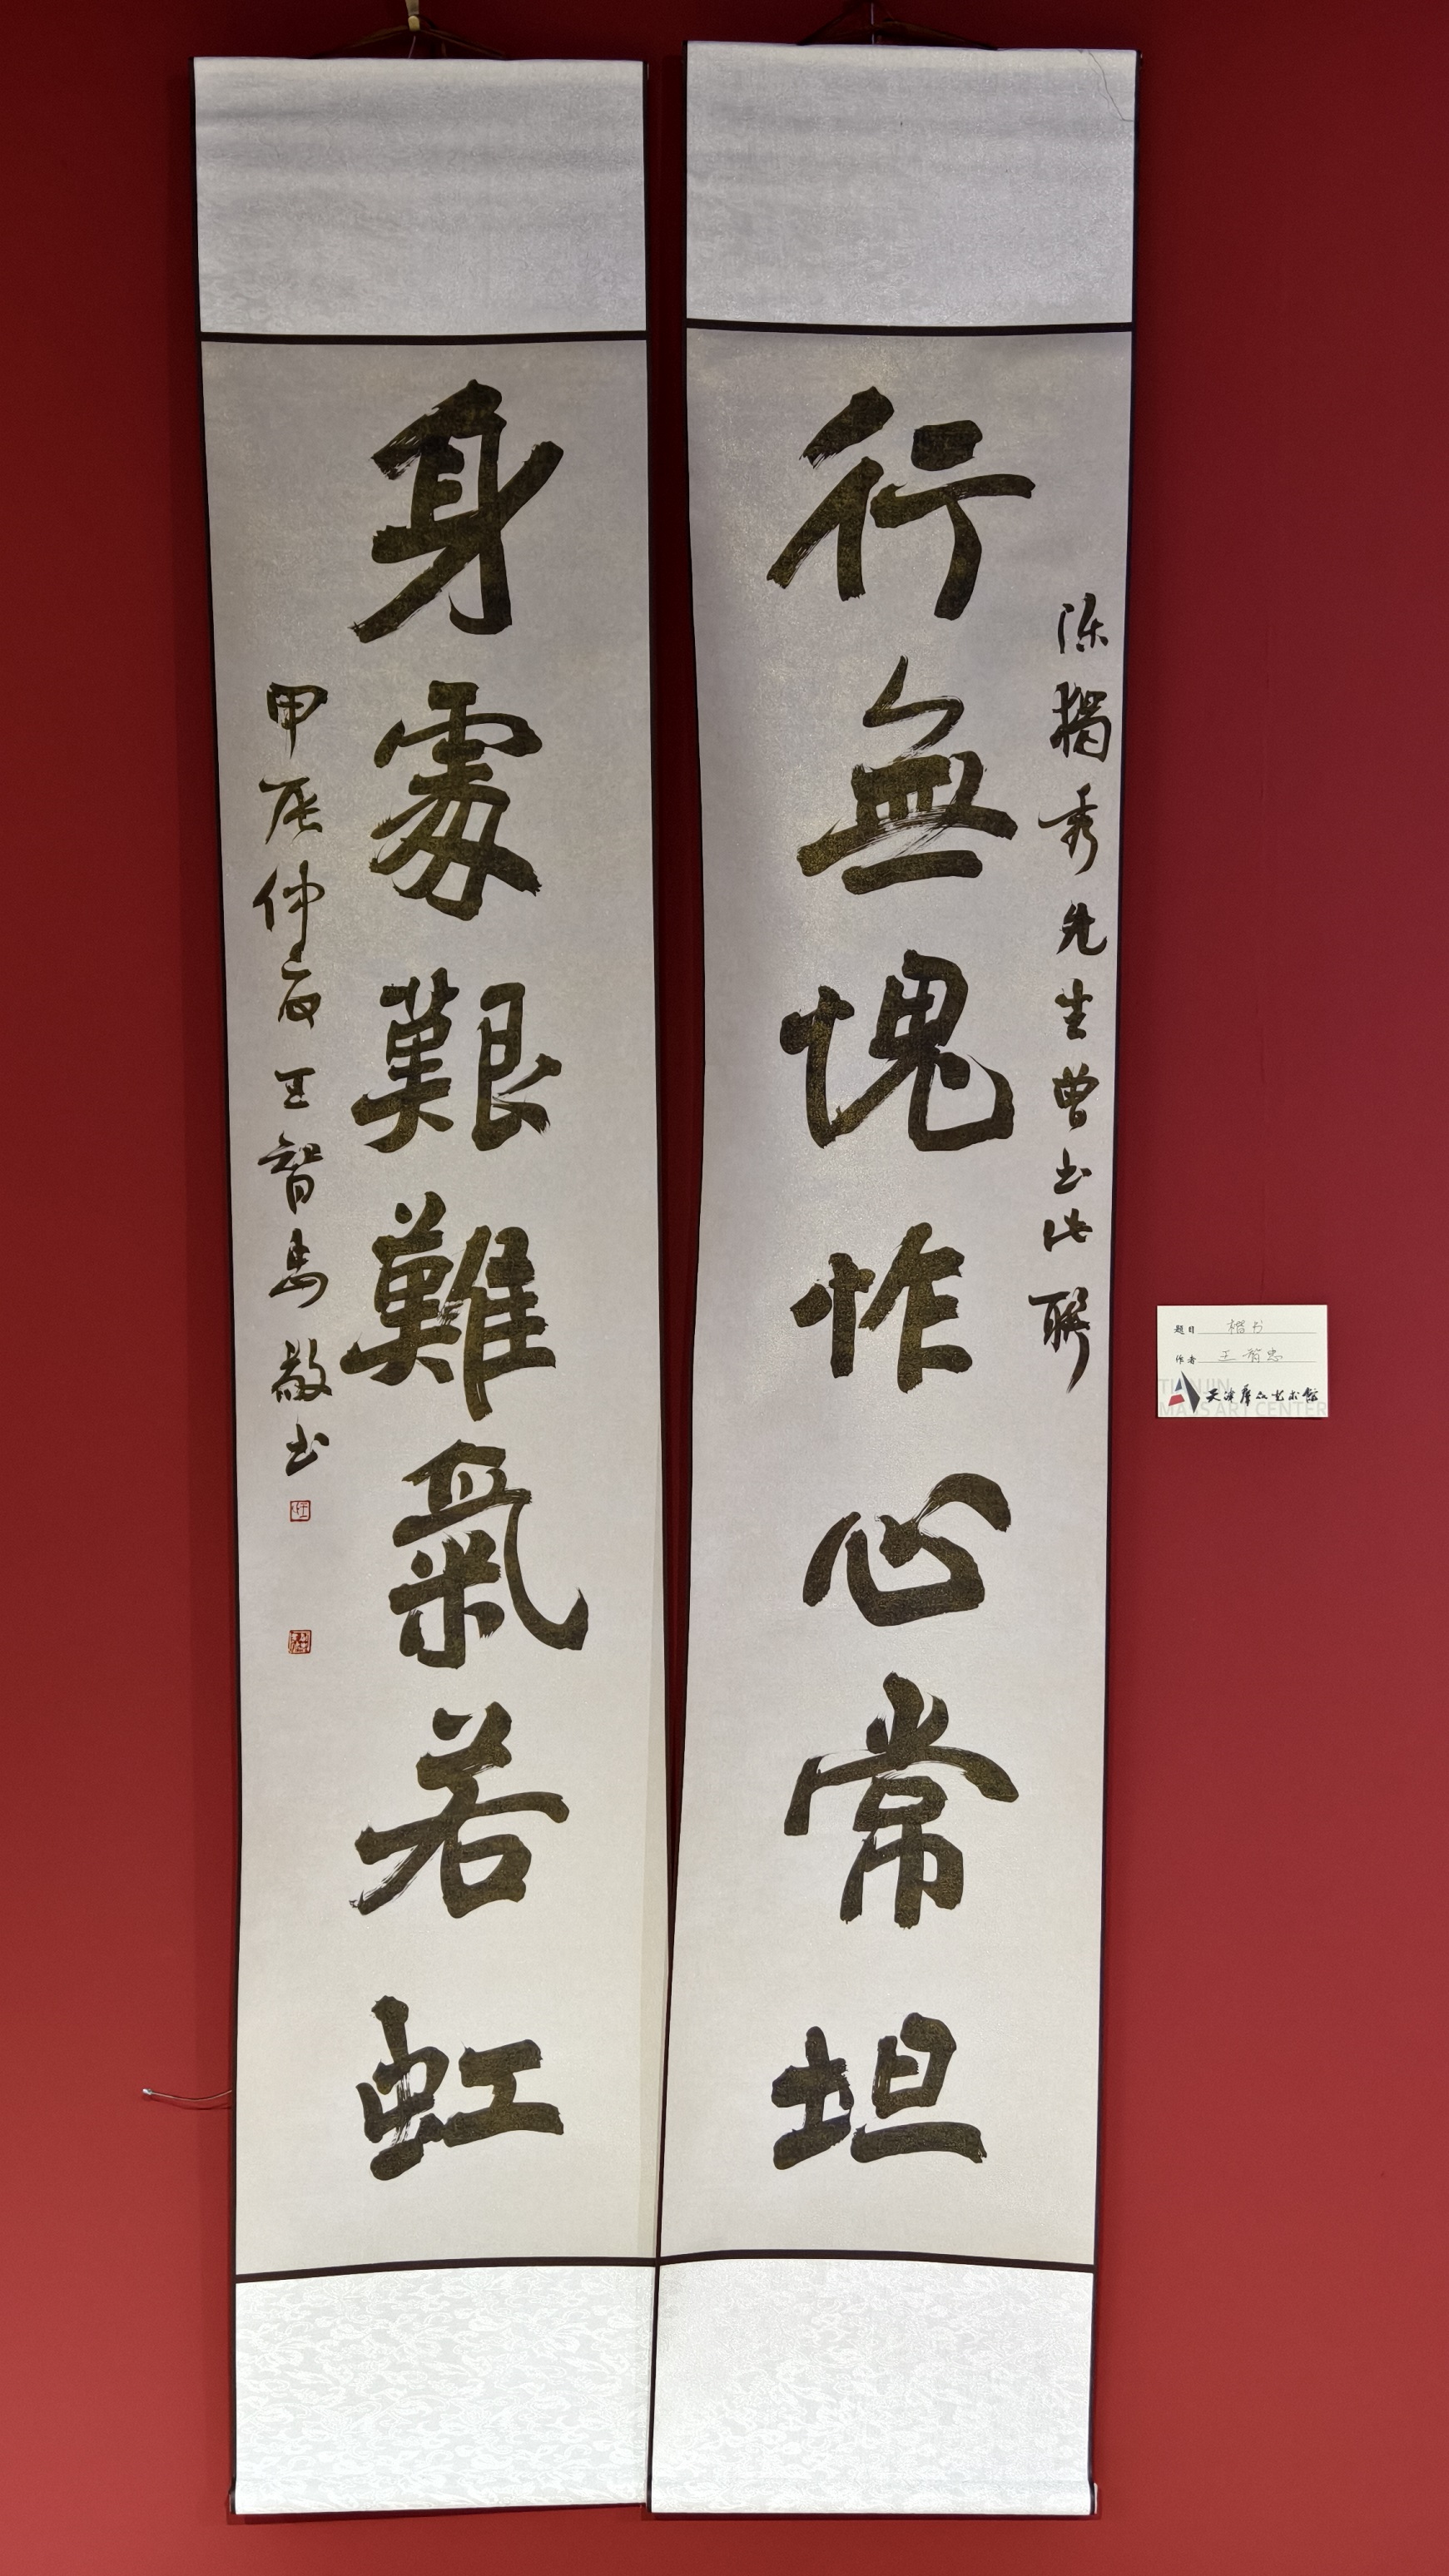 陈独秀先生曾书此联
行無愧怍心常坦
身處艱難氣若虹
甲辰仲夏王智忠敬书
题目 楷书
作者 王智忠
天津群众艺术馆
TIANJIN
MASS ART CENTER